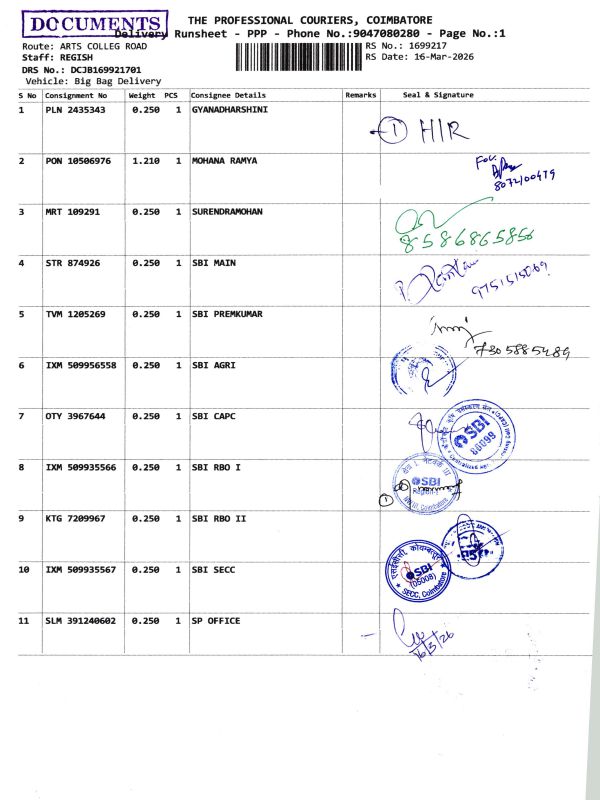 DOCUMENTS
THE PROFESSIONAL COURIERS, COIMBATORE
Delivery Runsheet - PPP - Phone No.:9047080280 - Page No.:1
Route: ARTS COLLEG ROAD
RS No.: 1699217
Staff: REGISH
RS Date: 16-Mar-2026
DRS No.: DCJB169921701
Vehicle: Big Bag Delivery
S No Consignment No Weight PCS Consignee Details Remarks Seal & Signature
1 PLN 2435343 0.250 1 GYANADHARSHINI
1 HIR
2 PON 10506976 1.210 1 MOHANA RAMYA
For
3 MRT 109291 0.250 1 SURENDRAMOHAN
8586865856
4 STR 874926 0.250 1 SBI MAIN
5 TVM 1205269 0.250 1 SBI PREMKUMAR
7305885489
6 IXM 509956558 0.250 1 SBI AGRI
7 OTY 3967644 0.250 1 SBI CAPC
SBI
8 IXM 509935566 0.250 1 SBI RBO I
SBI
Region-I
Coimbatore
1
9 KTG 7209967 0.250 1 SBI RBO II
10 IXM 509935567 0.250 1 SBI SECC
SBI
(05008)
SECC, Coimbatore
11 SLM 391240602 0.250 1 SP OFFICE
16/3/26